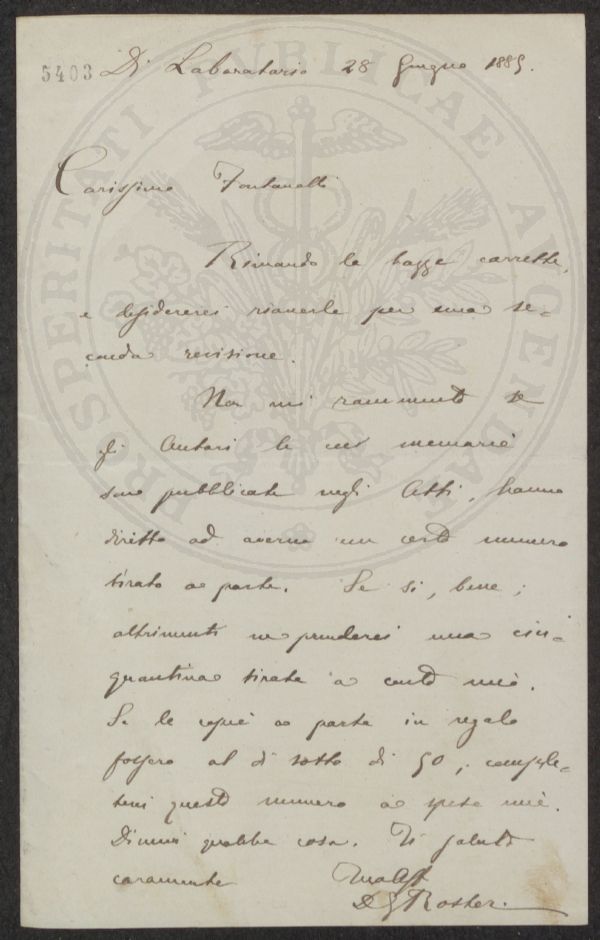 5403 Di Laboratorio 28 Giugno 1885.
Carissimo Fontanelli
Rimando le bozze corrette,
e desidererei riaverle per una se-
conda revisione.
Non mi rammento se
gli Autori le cui memorie
sono pubblicate negli Atti, hanno
diritto ad averne un certo numero
tirato a parte. Se sì, bene;
altrimenti ne prenderei una cin-
quantina tirate a conto mio.
Se le copie a parte in regalo
fossero al di sotto di 50, comple-
temi questo numero a spese mie.
Dimmi qualche cosa. Ti saluto
caramente
D G Roster.
PROSPERITATI PVBLICAE AVGENDAE